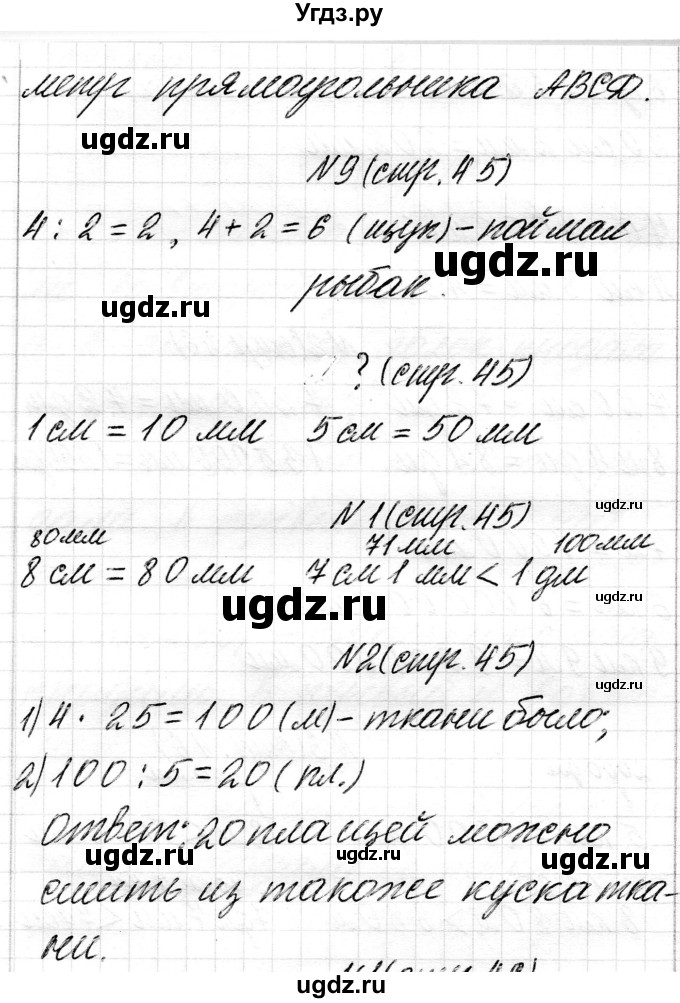 Угдз.ру
метр прямоугольника ABCD.
ugdz.ru
N9 (стр. 45)
4 : 2 = 2, 4 + 2 = 6 (щук) - поймал
ugdz.ru
рыбак.
ugdz.ru
? (стр. 45)
1 см = 10 мм 5 см = 50 мм
ugdz.ru
N1 (стр. 45)
80 мм 71 мм 100 мм
8 см = 80 мм 7 см 1 мм < 1 дм
ugdz.ru
ugdz.ru
N2 (стр. 45)
1) 4 · 25 = 100 (м) - ткани было;
2) 100 : 5 = 20 (пл.)
Ответ: 20 плащей можно
ugdz.ru ugdz.ru ugdz.ru
сшить из такого же куска тка-
ни.
ugdz.ru